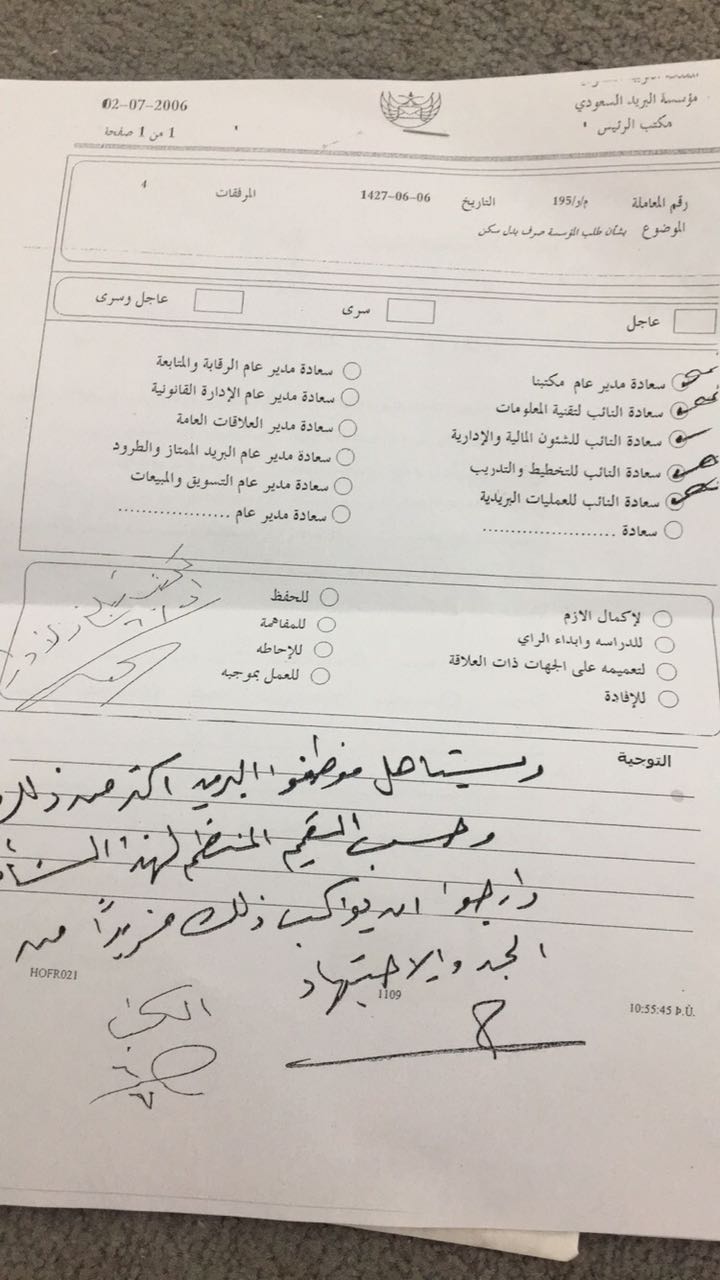 مؤسسة البريد السعودي
مكتب الرئيس
02-07-2006
1 من 1 صفحة
رقم المعاملة م/د/195 التاريخ 1427-06-06 المرفقات 4
الموضوع بشأن طلب المؤسسة صرف بدل سكن
عاجل سرى عاجل وسرى
سعادة مدير عام مكتبنا
سعادة النائب لتقنية المعلومات
سعادة النائب للشئون المالية والإدارية
سعادة النائب للتخطيط والتدريب
سعادة النائب للعمليات البريدية
سعادة .....................
سعادة مدير عام الرقابة والمتابعة
سعادة مدير عام الإدارة القانونية
سعادة مدير العلاقات العامة
سعادة مدير عام البريد الممتاز والطرود
سعادة مدير عام التسويق والمبيعات
سعادة مدير عام ..................
لإكمال الازم
للدراسه وابداء الراي
لتعميمه على الجهات ذات العلاقة
للإفادة
للحفظ
للمفاهمة
للإحاطه
للعمل بموجبه
التوجية
ويستاهل موظفوا البريد اكثر من ذلك
وحسب المنظم لهذا الشأن
وارجوا ان يواكب ذلك مزيداً من
الجد والاجتهاد
HOFR021
1109
10:55:45 Þ.Ù.